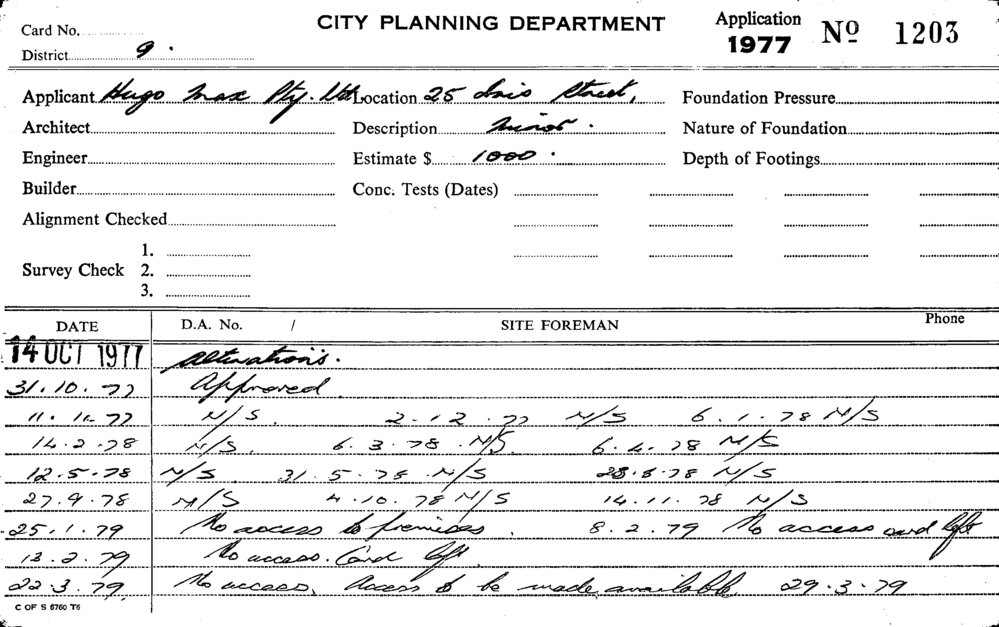 Card No.
CITY PLANNING DEPARTMENT
Application 1977 No 1203
District 9.
Applicant Hugo Max Pty. Ltd Location 25 Iris Street, Foundation Pressure
Architect Description Minor. Nature of Foundation
Engineer Estimate $ 1000. Depth of Footings
Builder Conc. Tests (Dates)
Alignment Checked
1.
Survey Check 2.
3.
DATE D.A. No. / SITE FOREMAN Phone
14 OCT 1977 Alterations.
31.10.77 Approved.
11.11.77 N/S. 2.12.77 N/S 6.1.78 N/S
14.2.78 N/S. 6.3.78. N/S 6.4.78 N/S
12.5.78 N/S 31.5.78. N/S N/S
27.9.78 N/S 4.10.78 N/S 14.11.78 N/S
25.1.79 No access to premises. 8.2.79 No access card left
13.2.79 No access. Card left.
22.3.79. No access, Access to be made available 29.3.79
C OF S 6760 T6